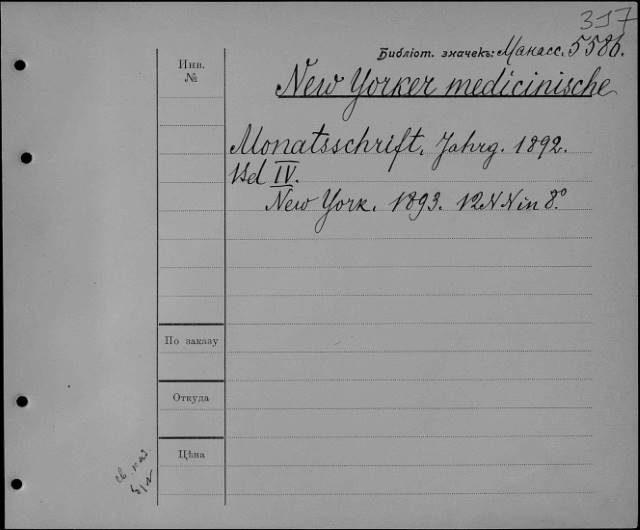 317
Библіот. значекъ: Манасс. 5586.
Инв.
№
New Yorker medicinische
Monatsschrift. Jahrg. 1892.
Bd IV.
New York. 1893. 12 N N in 8.°
По заказу
Откуда
Цѣна